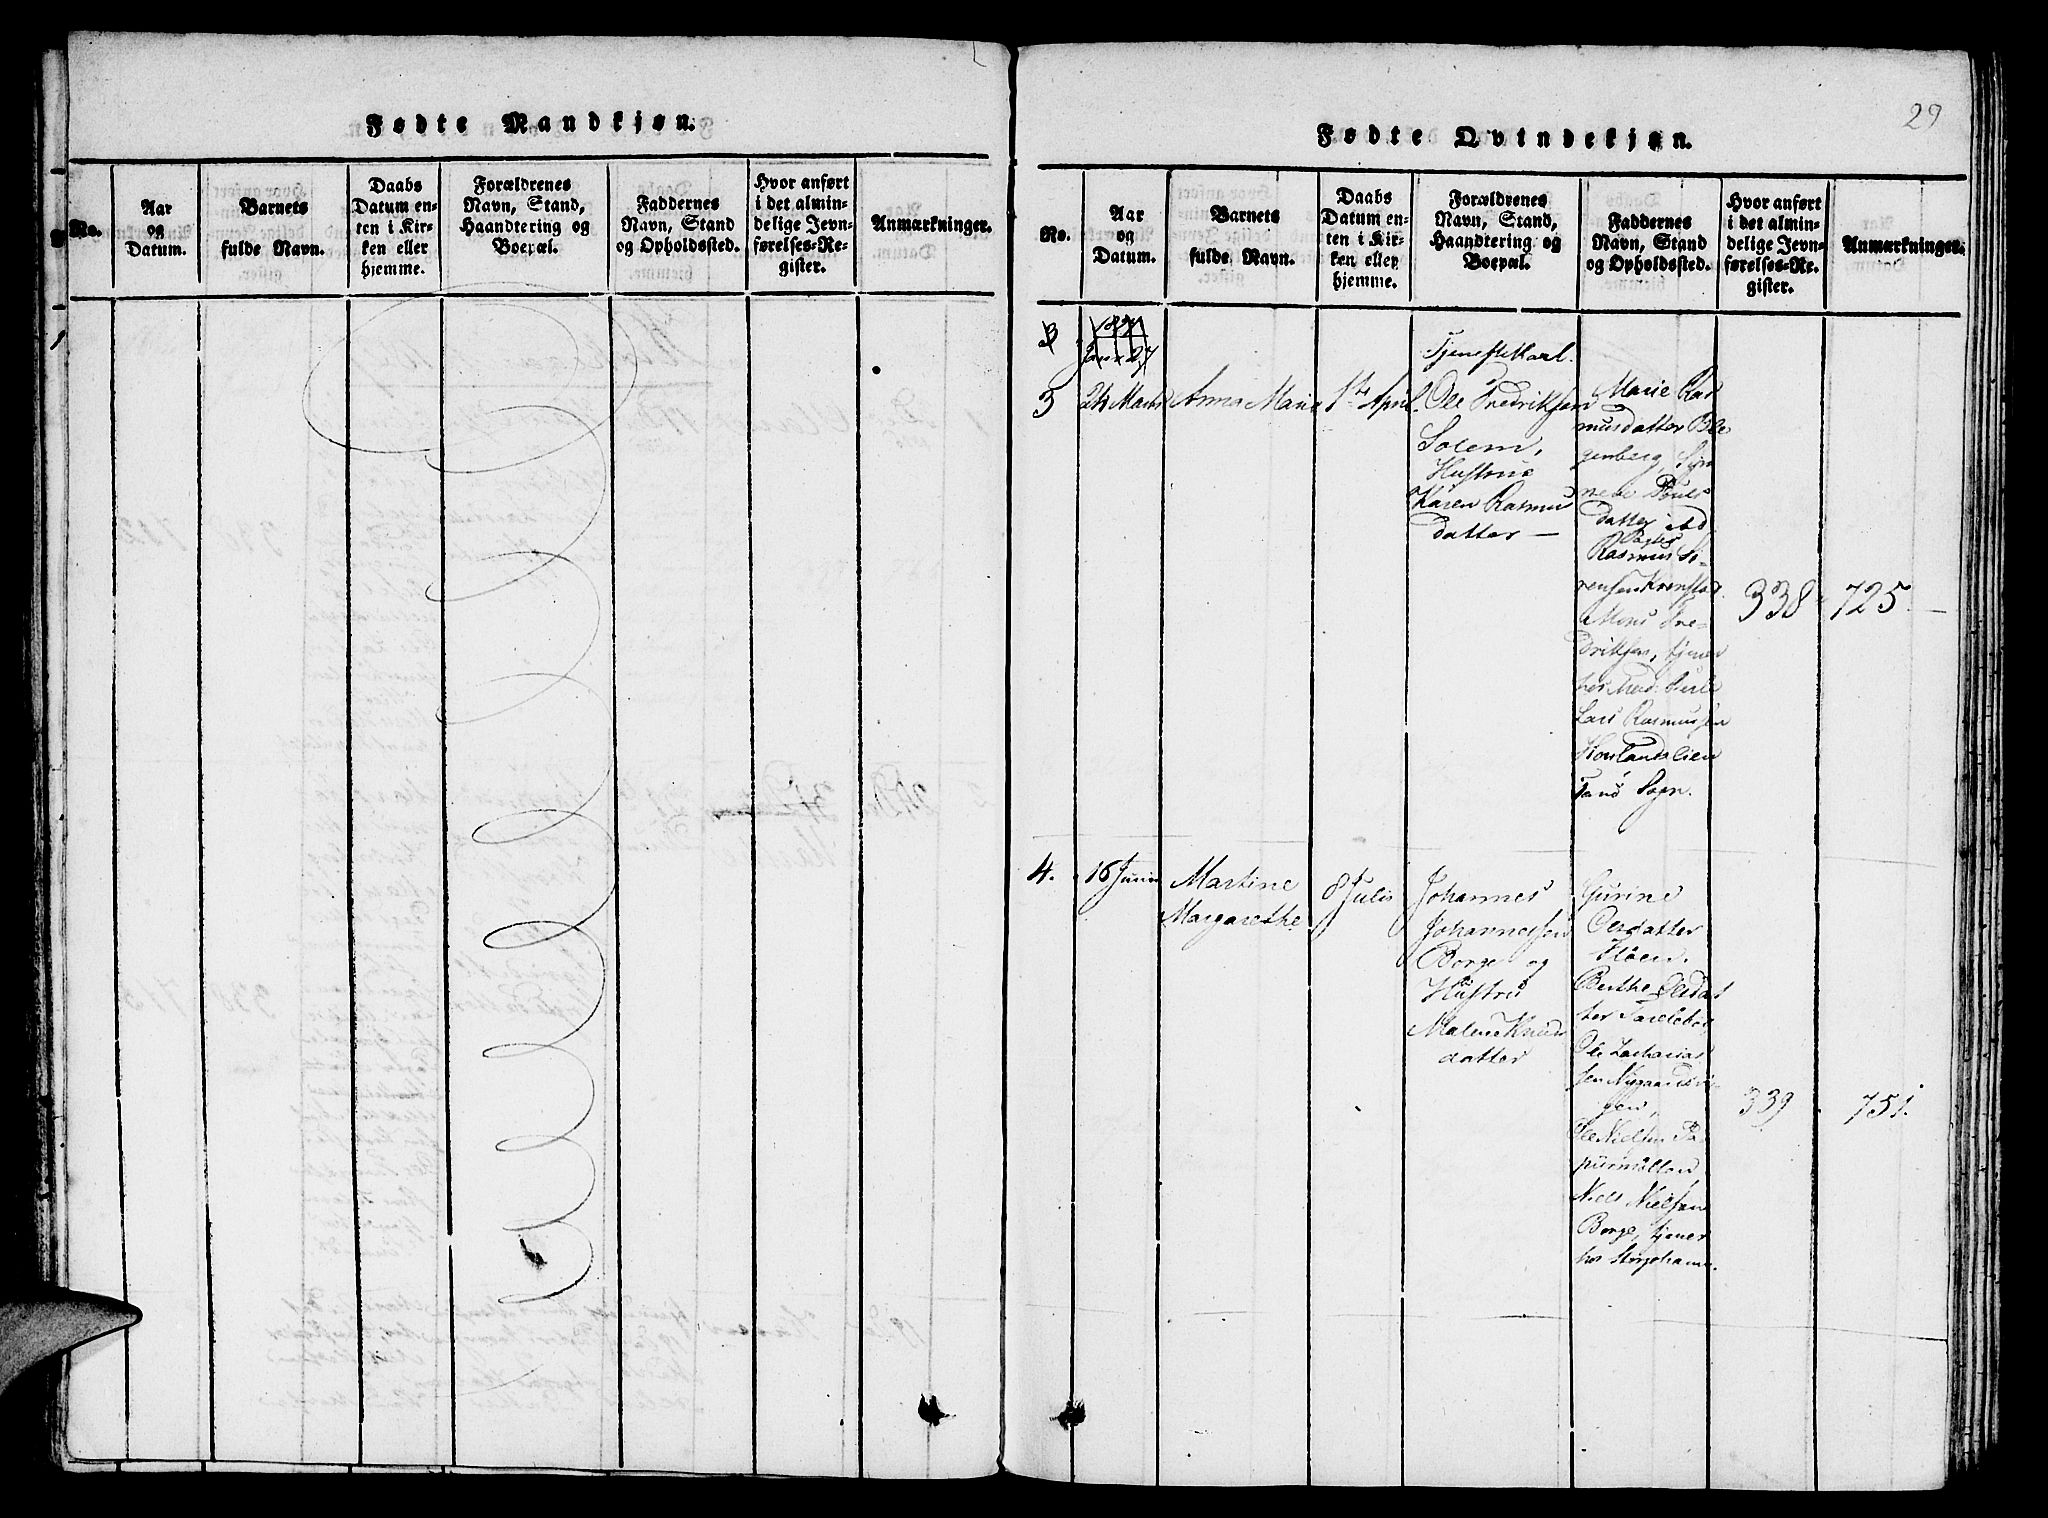 Fødte Mandkjøn.
No.
Aar
og
Datum.
Barnets
fulde Navn.
Daabs
Datum en-
ten i Kir-
ken eller
hjemme.
Forældrenes
Navn, Stand,
Haandtering og
Boepæl.
Faddernes
Navn, Stand
og Opholdssted.
Hvor anført
i det almin-
delige Jevn-
førelses-Re-
gister.
Anmærkninger.
29
Fødte Qvindekjøn.
No.
Aar
og
Datum.
Barnets
fulde Navn.
Daabs
Datum en-
ten i Kir-
ken eller
hjemme.
Forældrenes
Navn, Stand,
Haandtering og
Boepæl.
Faddernes
Navn, Stand
og Opholdssted.
Hvor anført
i det almin-
delige Jevn-
førelses-Re-
gister.
Anmærkninger.
3
3
24 Marts
Anna Maria
1ste April
Tjenestekarl.
Ole Fredriksen
Solem,
Hustrue
Karen Rasmus
datter —
Marie Ras
musdatter Ble
genberg, Syn
neve Pouls
datter ibd
Rasmus Sö-
rensen
Mons Fre-
driksen, tjener
Lars Rasmussen
Sogn.
338
725.
4.
16 Junii
Martine
Margarethe
8 Julii
Johannes
Johannessen
Borge og
Hustru
Malene Knuds
datter
Gurine
Olsdatter
Höen.
Berthe Olsdat
ter
Ole Zacharias
sen Nygaardsvi-
gen,
Ole Nielsen Pa
pirmöllen
Niels Nielsen
Borge, tjener
hos
339
751.